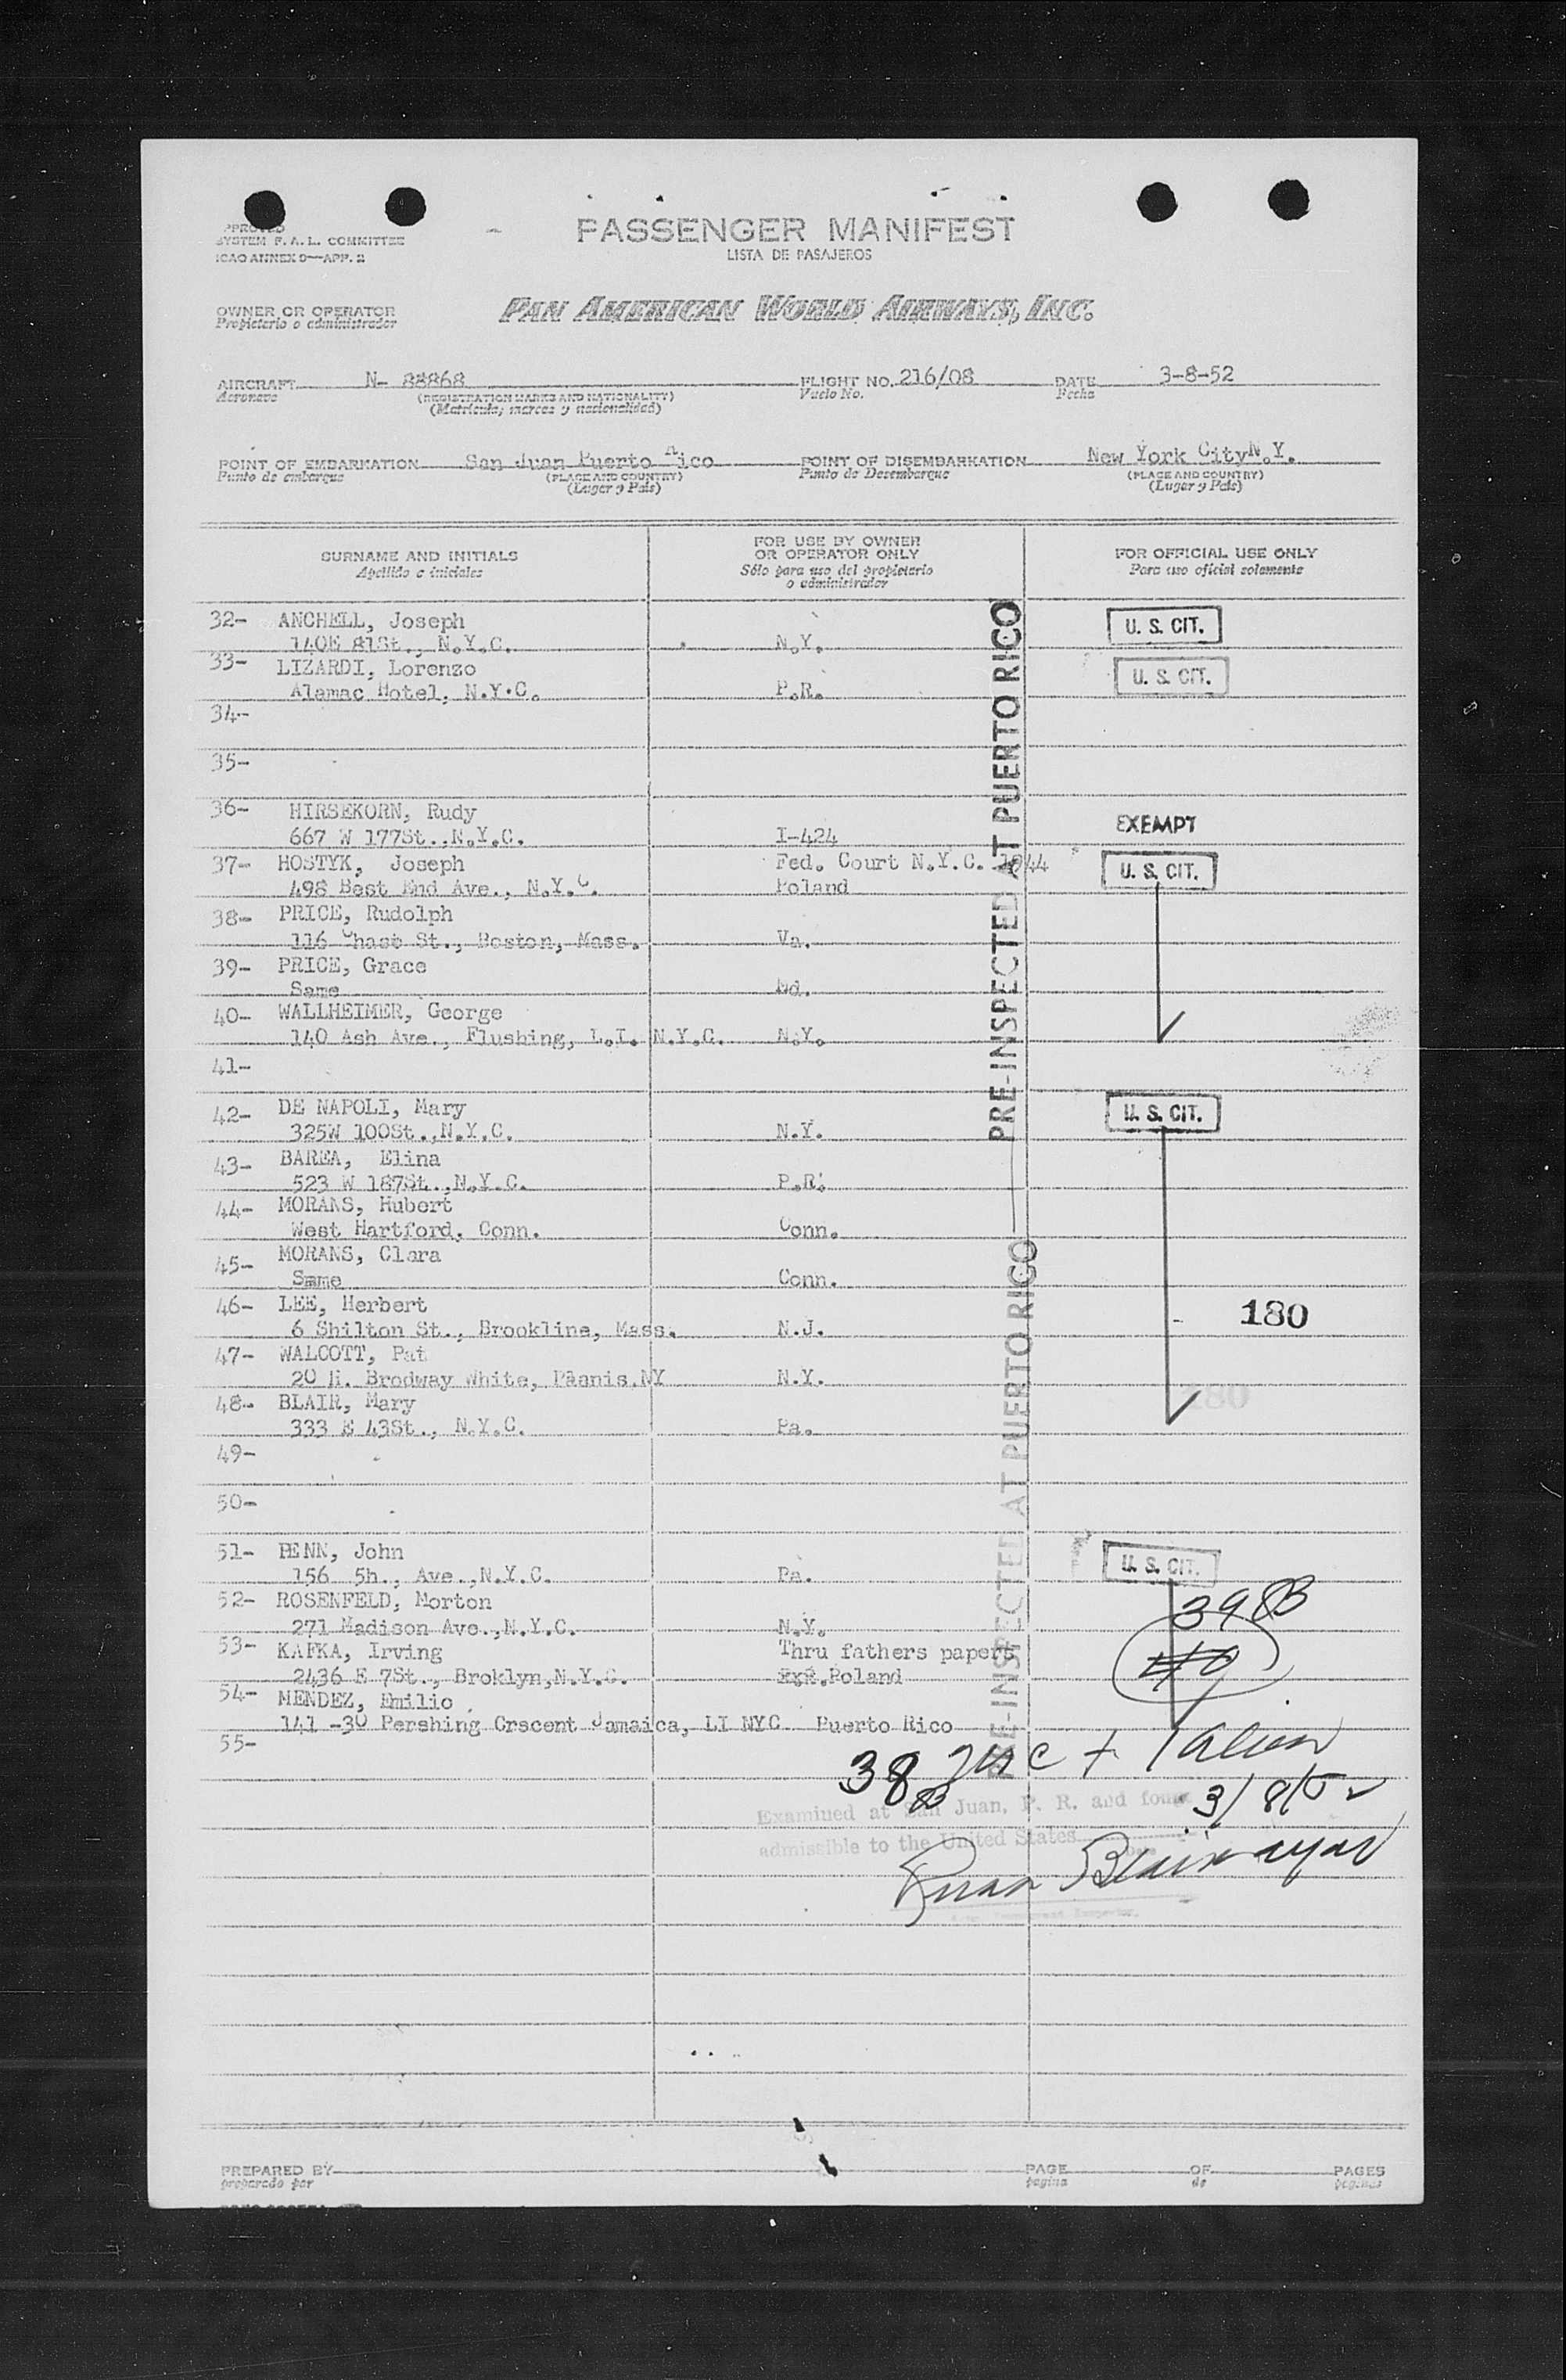 PASSENGER MANIFEST
LISTA DE PASAJEROS
SYSTEM F. A. L. COMMITTEE
ICAO ANNEX 9—APP. 2
OWNER OR OPERATOR
Propietario o administrador
PAN AMERICAN WORLD AIRWAYS, INC.
AIRCRAFT N- 88868 FLIGHT NO. 216/08 DATE 3-8-52
Aeronave (REGISTRATION MARKS AND NATIONALITY) Vuelo No. Fecha
(Matricula, marcas y nacionalidad)
POINT OF EMBARKATION San Juan Puerto Rico POINT OF DISEMBARKATION New York City N.Y.
Punto de embarque (PLACE AND COUNTRY) Punto de Desembarque (PLACE AND COUNTRY)
(Lugar y Pais) (Lugar y Pais)
SURNAME AND INITIALS
Apellido e iniciales
FOR USE BY OWNER
OR OPERATOR ONLY
Sólo para uso del propietario
o administrador
FOR OFFICIAL USE ONLY
Para uso oficial solamente
32- ANCHELL, Joseph U. S. CIT.
140E 81St., N.Y.C. N.Y.
33- LIZARDI, Lorenzo U. S. CIT.
Alamac Hotel, N.Y.C. P.R.
34-
35-
36- HIRSEKORN, Rudy EXEMPT
667 W 177St.,N.Y.C. I-424
37- HOSTYK, Joseph Fed. Court N.Y.C. 1944 U. S. CIT.
498 Best End Ave., N.Y.C. Poland
38- PRICE, Rudolph
116 Chase St., Boston, Mass. Va.
39- PRICE, Grace
Same Md.
40- WALLHEIMER, George
140 Ash Ave., Flushing, L.I. N.Y.C. N.Y.
41-
42- DE NAPOLI, Mary U. S. CIT.
325W 100St.,N.Y.C. N.Y.
43- BAREA, Elina
523 W 187St.,N.Y.C. P.R.
44- MORANS, Hubert
West Hartford, Conn. Conn.
45- MORANS, Clara
Smme Conn.
46- LEE, Herbert 180
6 Shilton St., Brookline, Mass. N.J.
47- WALCOTT, Pat
20 H. Brodway White, Plaanis.NY N.Y.
48- BLAIR, Mary 180
333 E 43St., N.Y.C. Pa.
49-
50-
51- PENN, John U. S. CIT.
156 5h., Ave.,N.Y.C. Pa.
52- ROSENFELD, Morton 39 B
271 Madison Ave.,N.Y.C. N.Y.
53- KAFKA, Irving Thru fathers papers
2436 E 7St., Broklyn,N.Y.C. Poland
54- MENDEZ, Emilio
141 -30 Pershing Crscent Jamaica, LI NYC Puerto Rico
55-
PRE-INSPECTED AT PUERTO RICO
PRE-INSPECTED AT PUERTO RICO
38 + 1 alien
3/8/52
Examined at San Juan, P. R. and found
admissible to the United States
PREPARED BY PAGE OF PAGES
preparado por pagina de paginas